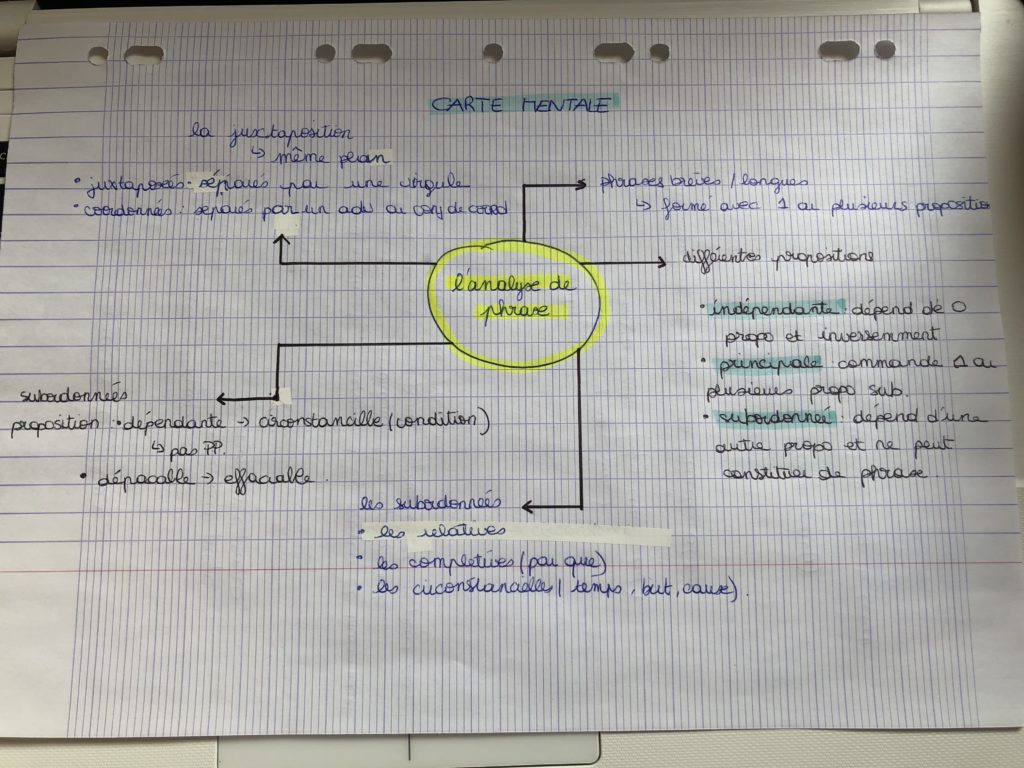 CARTE MENTALE
la juxtaposition
↳ même plan
• juxtaposés : séparés par une virgule
• coordonnés : séparés par un adv ou conj de coord
phrases brèves / longues
↳ formé avec 1 ou plusieurs proposition
différentes propositions
l'analyse de
phrase
• indépendante : dépend de 0
propo et inversemment
• principale commande 1 ou
plusieurs propo sub.
• subordonneé : dépend d'une
autre propo et ne peut
constituer de phrase
subordonneés
proposition : • dépendante → circonstancille (condition)
↳ pas PP.
• déplacable → effaciable.
les subordonneés
• les relatives
• les completives (par que)
• les circonstancielles ( temps, but, cause).